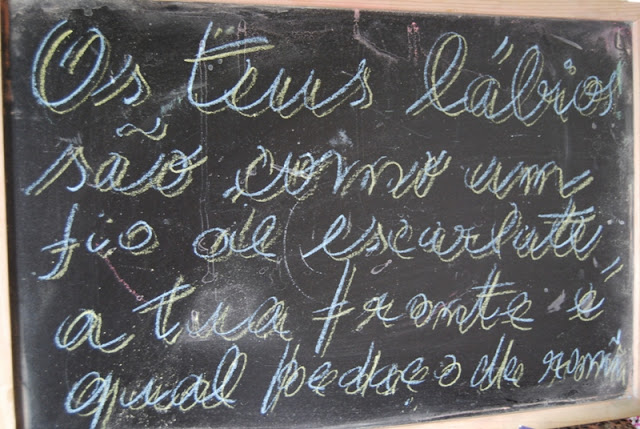 Os teus lábios
são como um
fio de escarlate
a tua fronte é
qual pedaço de romã